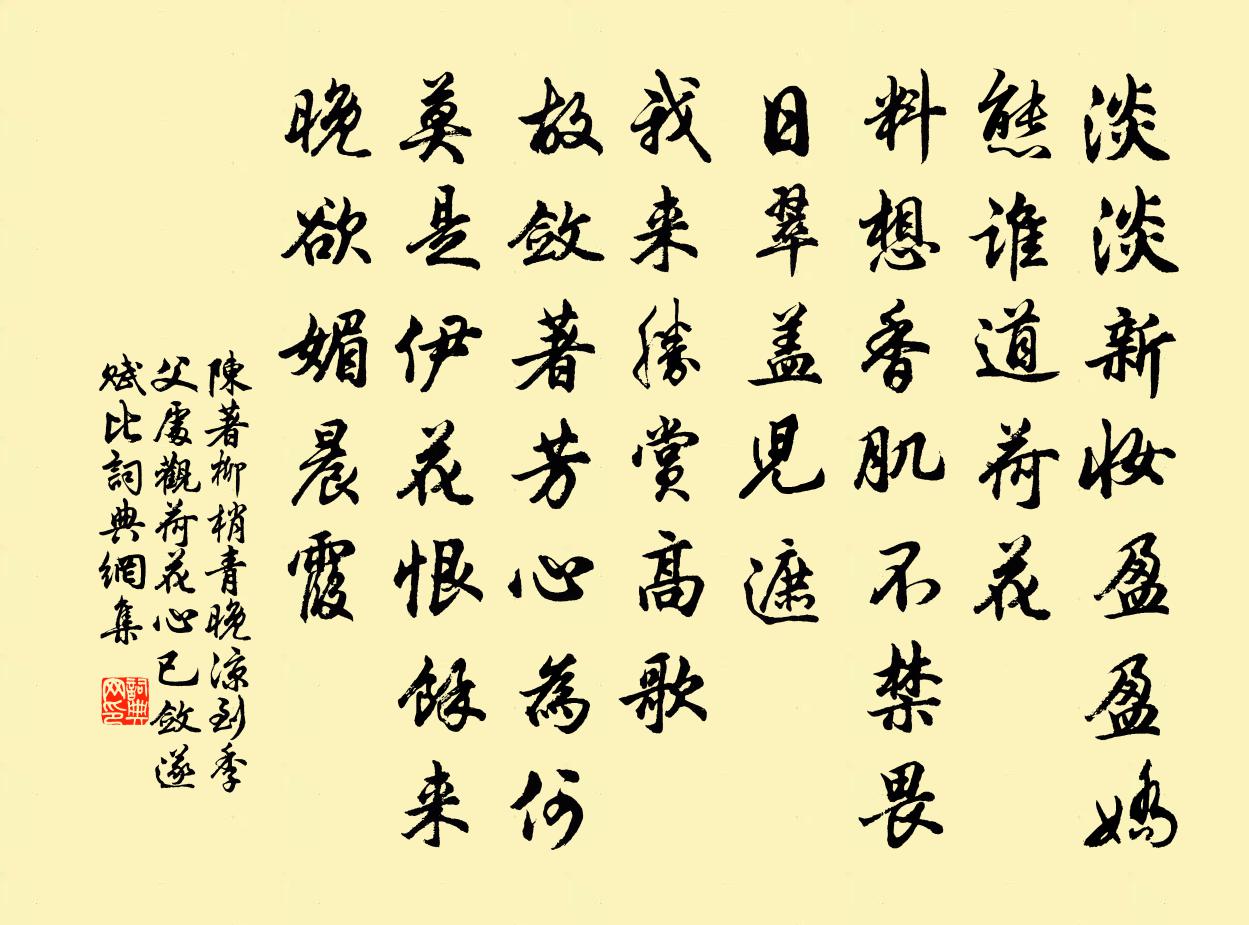 淡淡新妝盈盈嬌
態誰道荷花
料想香肌不禁畏
日翠蓋兒遮
我来勝賞高歌
故斂著芳心為何
莫是伊花恨餘来
晚欲媚晨霞
陳著柳梢青晚涼到季
父處觀荷花心已斂遂
賦比詞典網集
詞典网印